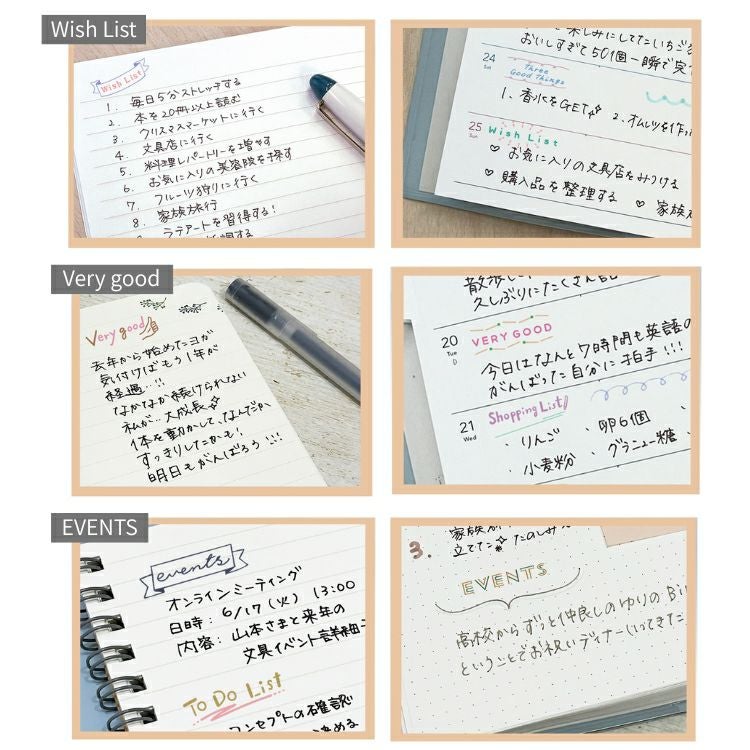 Wish List
Wish List
1. 毎日5分ストレッチする
2. 本を20冊以上読む
3. クリスマスマーケットに行く
4. 文具店に行く
5. 料理レパートリーを増やす
6. お気に入りの美容院を探す
7. フルーツ狩りに行く
8. 家族旅行
ラテアートを習得する!
楽しみにしてたいちご
おいしすぎて50個一瞬で完
24
Sun
Three
Good Things
1. 香水をGET
2. オムレツを作
25
Sun
Wish List
♡ お気に入りの文具店をみつける
♡ 購入品を整理する ♡ 家族
Very good
Very good
去年から始めたヨガ
気付けばもう1年が
経過…!!
なかなか続けられない
私が… 大成長
体を動かして、なんだか
すっきりしたかも!
明日もがんばろう!!!
散歩し
久しぶりにたくさん
20
Tue
VERY GOOD
今日はなんと7時間も英語の
がんばった自分に拍手!!!
21
Wed
Shopping List
・りんご ・卵6個
・小麦粉 ・グラニュー糖
EVENTS
events
オンラインミーティング
日時: 6/17(火) 13:00
内容: 山本さまと来年の
文具イベント詳細
To Do List
コンセプトの確認
決める
3.
家族が
立てた たのしみ
EVENTS
高校からずっと仲良しのゆりの Bi
ということでお祝いディナーいってきた